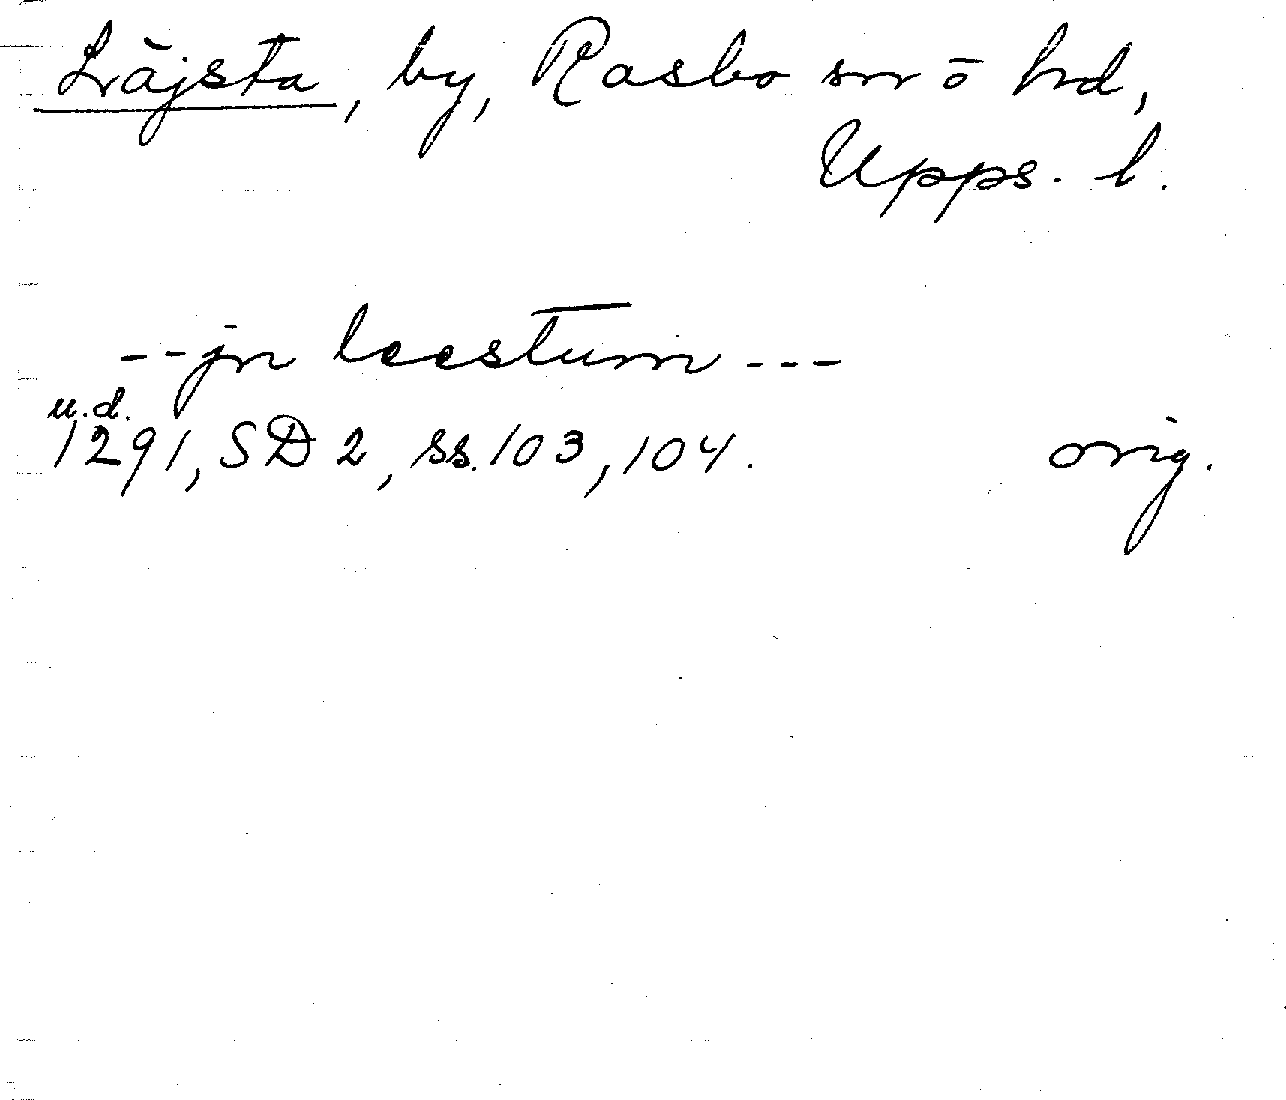 Läjsta, by, Rasbo sn o hd,
Upps. l.
--jn leestum---
u.d.
1291, SD 2, ss. 103, 104. orig.